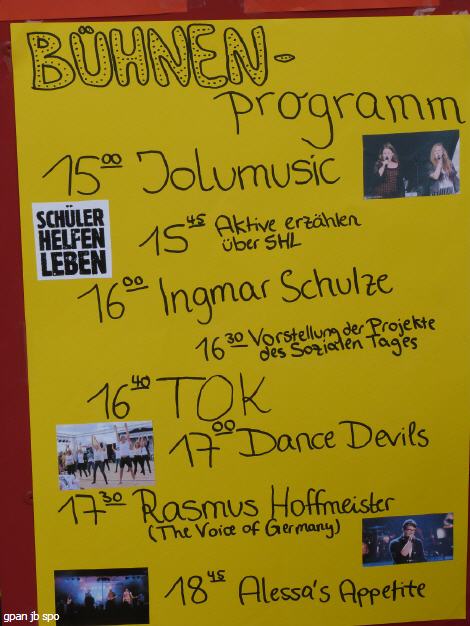 BÜHNEN-
programm
15⁰⁰ Jolumusic
SCHÜLER
HELFEN
LEBEN
15⁴⁵ Aktive erzählen
über SHL
16⁰⁰ Ingmar Schulze
16³⁰ Vorstellung der Projekte
des Sozialen Tages
16⁴⁰ TOK
17⁰⁰ Dance Devils
17³⁰ Rasmus Hoffmeister
(The Voice of Germany)
18⁴⁵ Alessa's Appetite
gpan jb spo